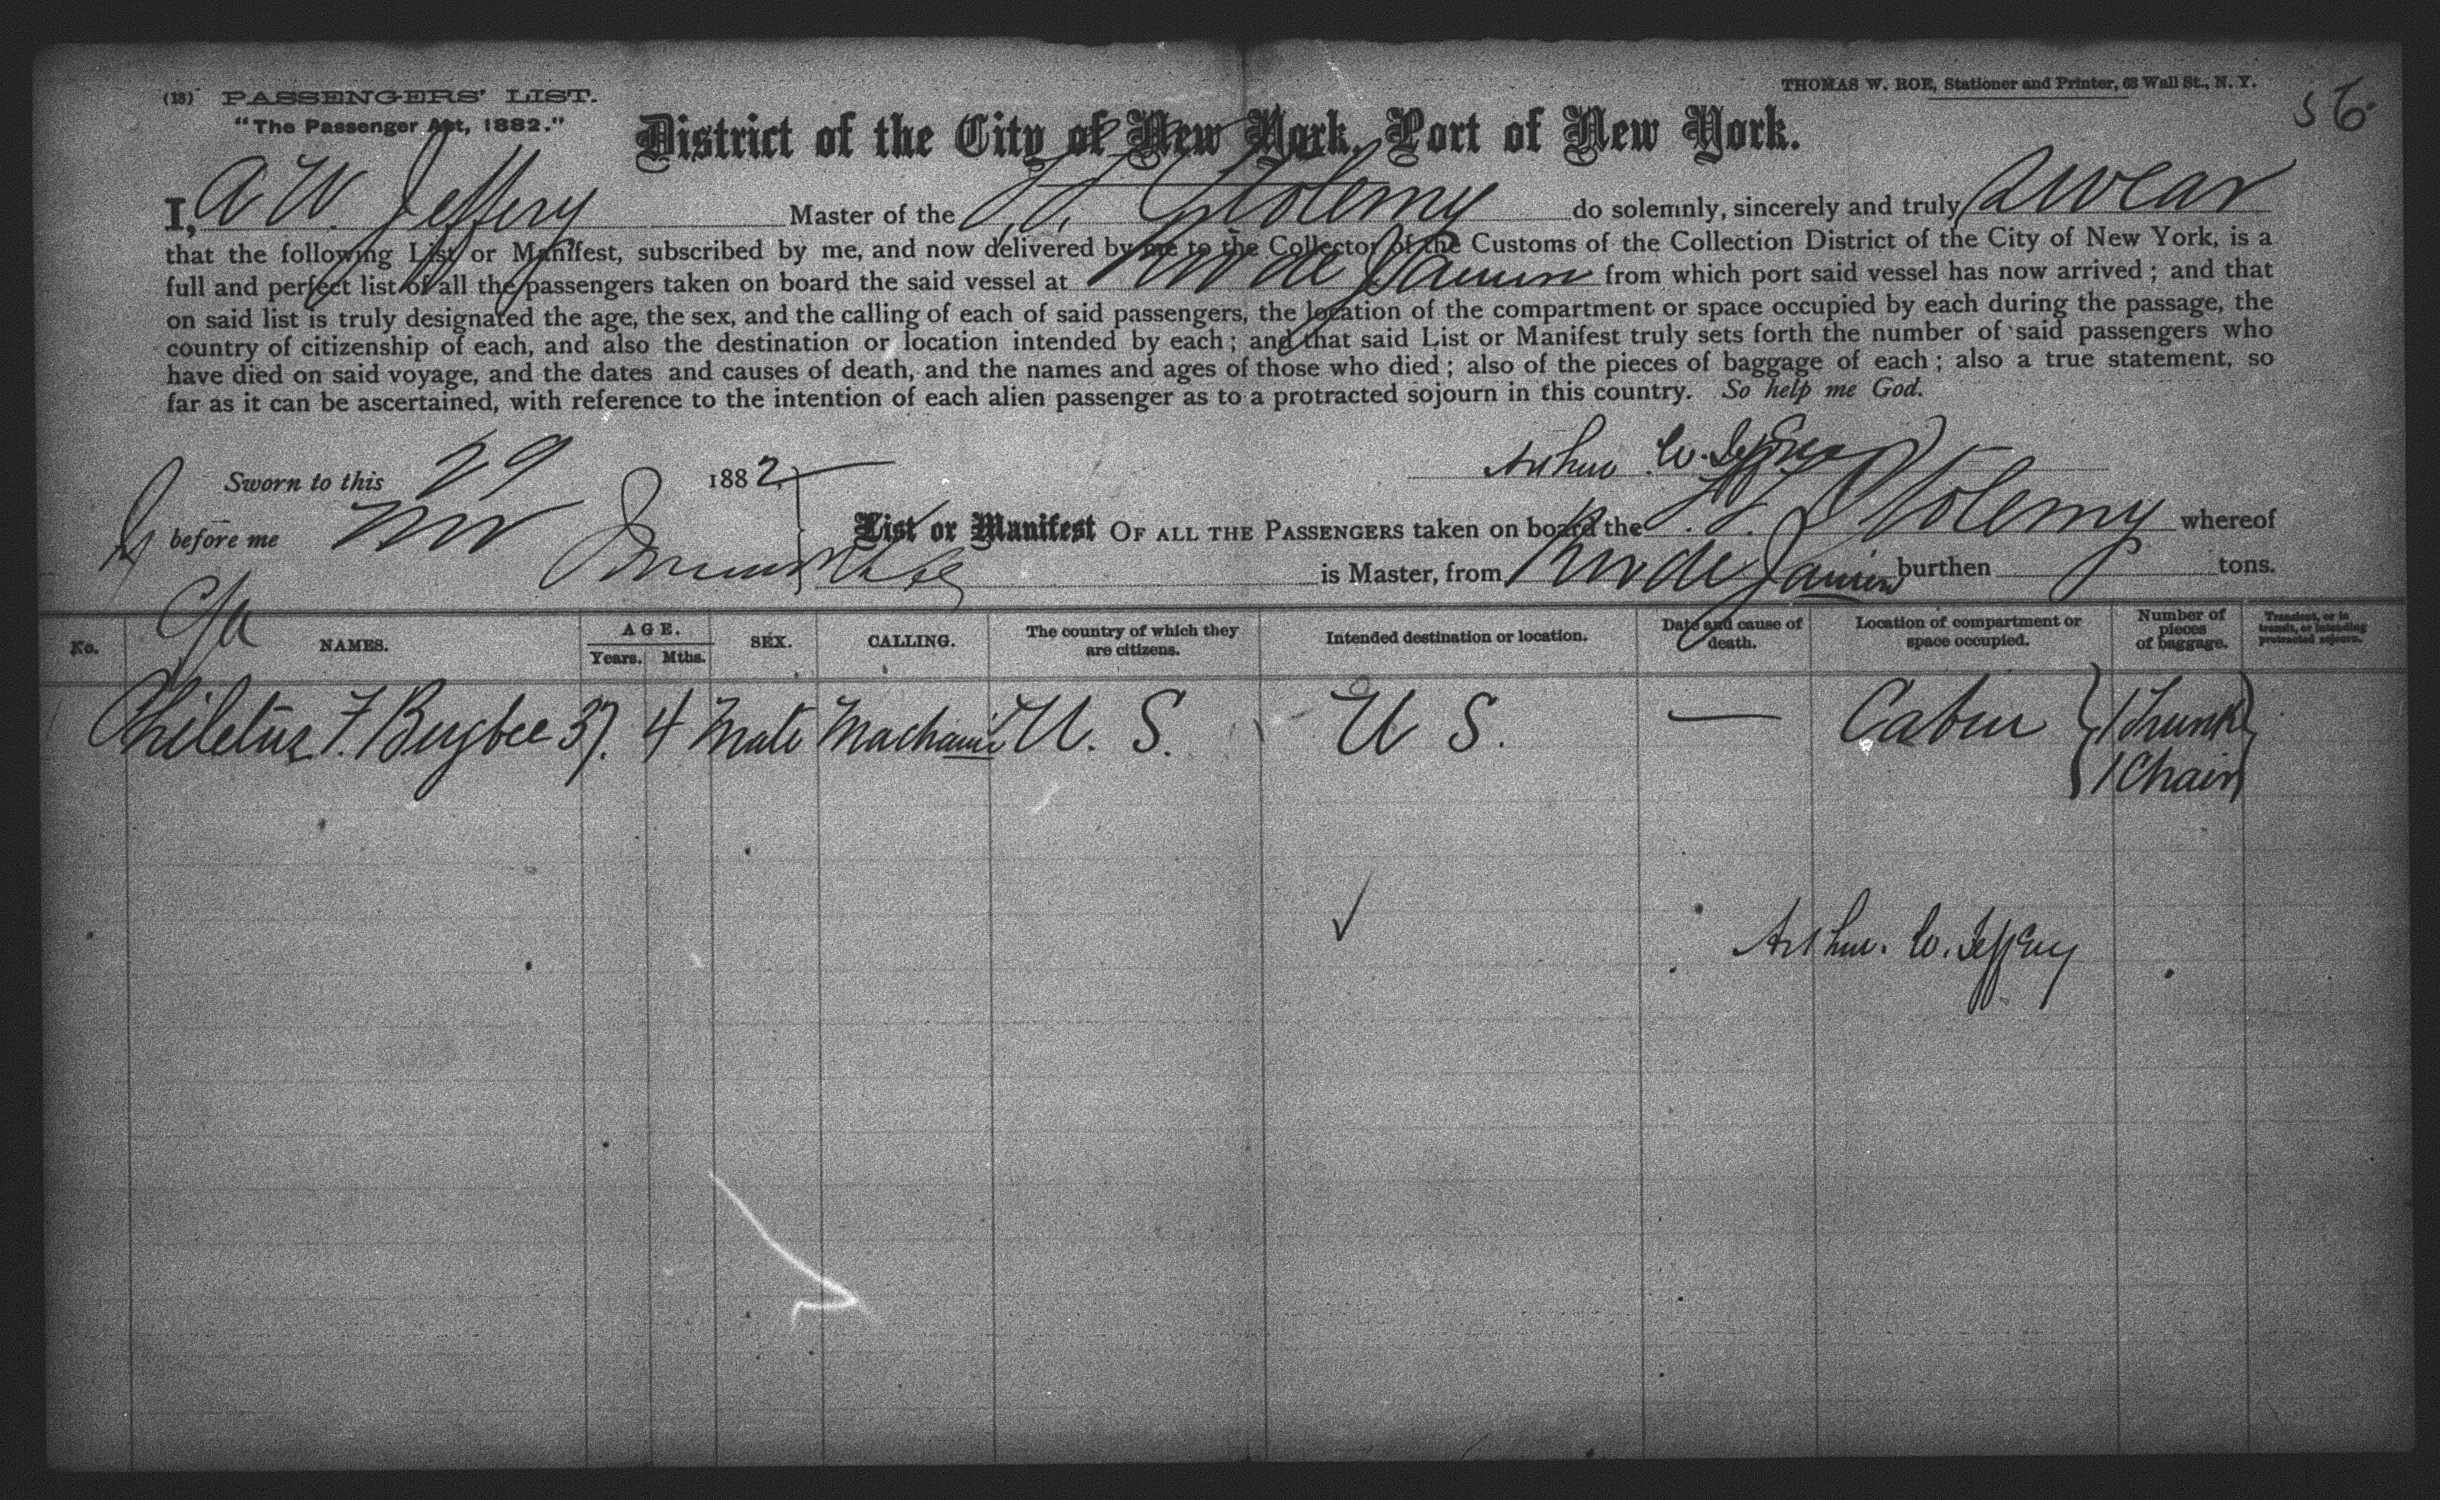 (18) PASSENGERS' LIST.
"The Passenger Act, 1882."
THOMAS W. ROE, Stationer and Printer, 63 Wall St., N. Y.
56
District of the City of New York, Port of New York.
I, A W. Jeffery Master of the S. S. Ptolemy do solemnly, sincerely and truly Swear
that the following List or Manifest, subscribed by me, and now delivered by me to the Collector of the Customs of the Collection District of the City of New York, is a
full and perfect list of all the passengers taken on board the said vessel at Rio de Janeiro from which port said vessel has now arrived; and that
on said list is truly designated the age, the sex, and the calling of each of said passengers, the location of the compartment or space occupied by each during the passage, the
country of citizenship of each, and also the destination or location intended by each; and that said List or Manifest truly sets forth the number of said passengers who
have died on said voyage, and the dates and causes of death, and the names and ages of those who died; also of the pieces of baggage of each; also a true statement, so
far as it can be ascertained, with reference to the intention of each alien passenger as to a protracted sojourn in this country. So help me God.
Sworn to this 29 Nov 1882,
before me
Arthur W. Jeffrey
List or Manifest OF ALL THE PASSENGERS taken on board the S. S. Ptolemy whereof
is Master, from Rio de Janeiro burthen tons.
No. NAMES. AGE. Years. Mths. SEX. CALLING. The country of which they are citizens. Intended destination or location. Date and cause of death. Location of compartment or space occupied. Number of pieces of baggage. Transient, or in transit, or intending protracted sojourn.
Philetus F. Bugbee 37. 4 Male Machanic U. S. U S. — Cabin 1 Trunk
1 Chair
Arthur. W. Jeffrey